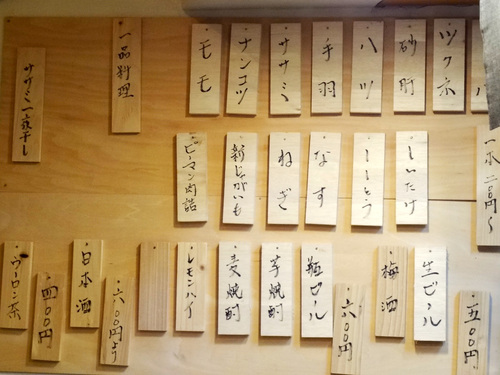 ツクネ
砂肝
ハツ
手羽
ササミ
ナンコツ
モモ
一品料理
ササミ一夜干し
一本二〇〇円〜
しいたけ
ししとう
なす
ねぎ
新じゃがいも
ピーマン肉詰
・五〇〇円
生ビール
梅酒
・六〇〇円
瓶ビール
芋焼酎
麦焼酎
レモンハイ
・六〇〇円より
日本酒
・四〇〇円
ウーロン茶